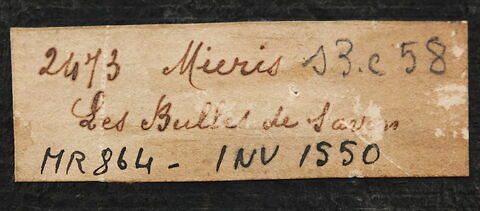 2473 Mieris s3.c 58
Les Bulles de Savon
MR 864 - INV 1550